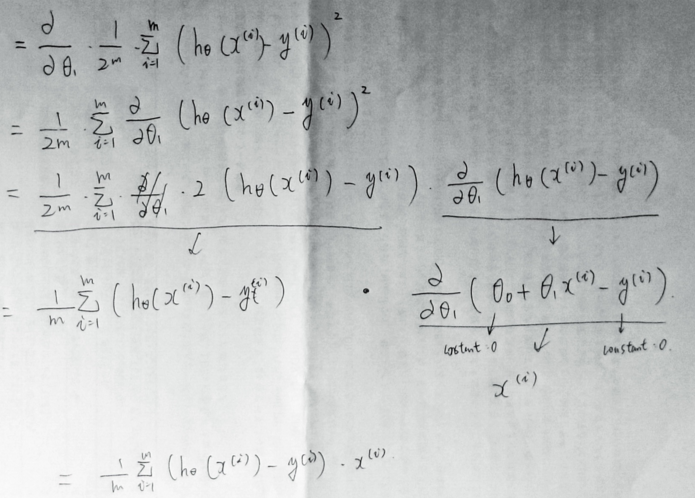 = ∂/∂θ₁ · 1/2m · Σᵢ₌₁ᵐ (hθ(x⁽ⁱ⁾) - y⁽ⁱ⁾)²
= 1/2m · Σᵢ₌₁ᵐ ∂/∂θ₁ (hθ(x⁽ⁱ⁾) - y⁽ⁱ⁾)²
= 1/2m · Σᵢ₌₁ᵐ · 2 (hθ(x⁽ⁱ⁾) - y⁽ⁱ⁾) · ∂/∂θ₁ (hθ(x⁽ⁱ⁾) - y⁽ⁱ⁾)
↓ ↓
= 1/m Σᵢ₌₁ᵐ (hθ(x⁽ⁱ⁾) - y⁽ⁱ⁾) · ∂/∂θ₁ (θ₀ + θ₁x⁽ⁱ⁾ - y⁽ⁱ⁾).
constant = 0 ↓ constant = 0.
x⁽ⁱ⁾
= 1/m Σᵢ₌₁ᵐ (hθ(x⁽ⁱ⁾) - y⁽ⁱ⁾) · x⁽ⁱ⁾.